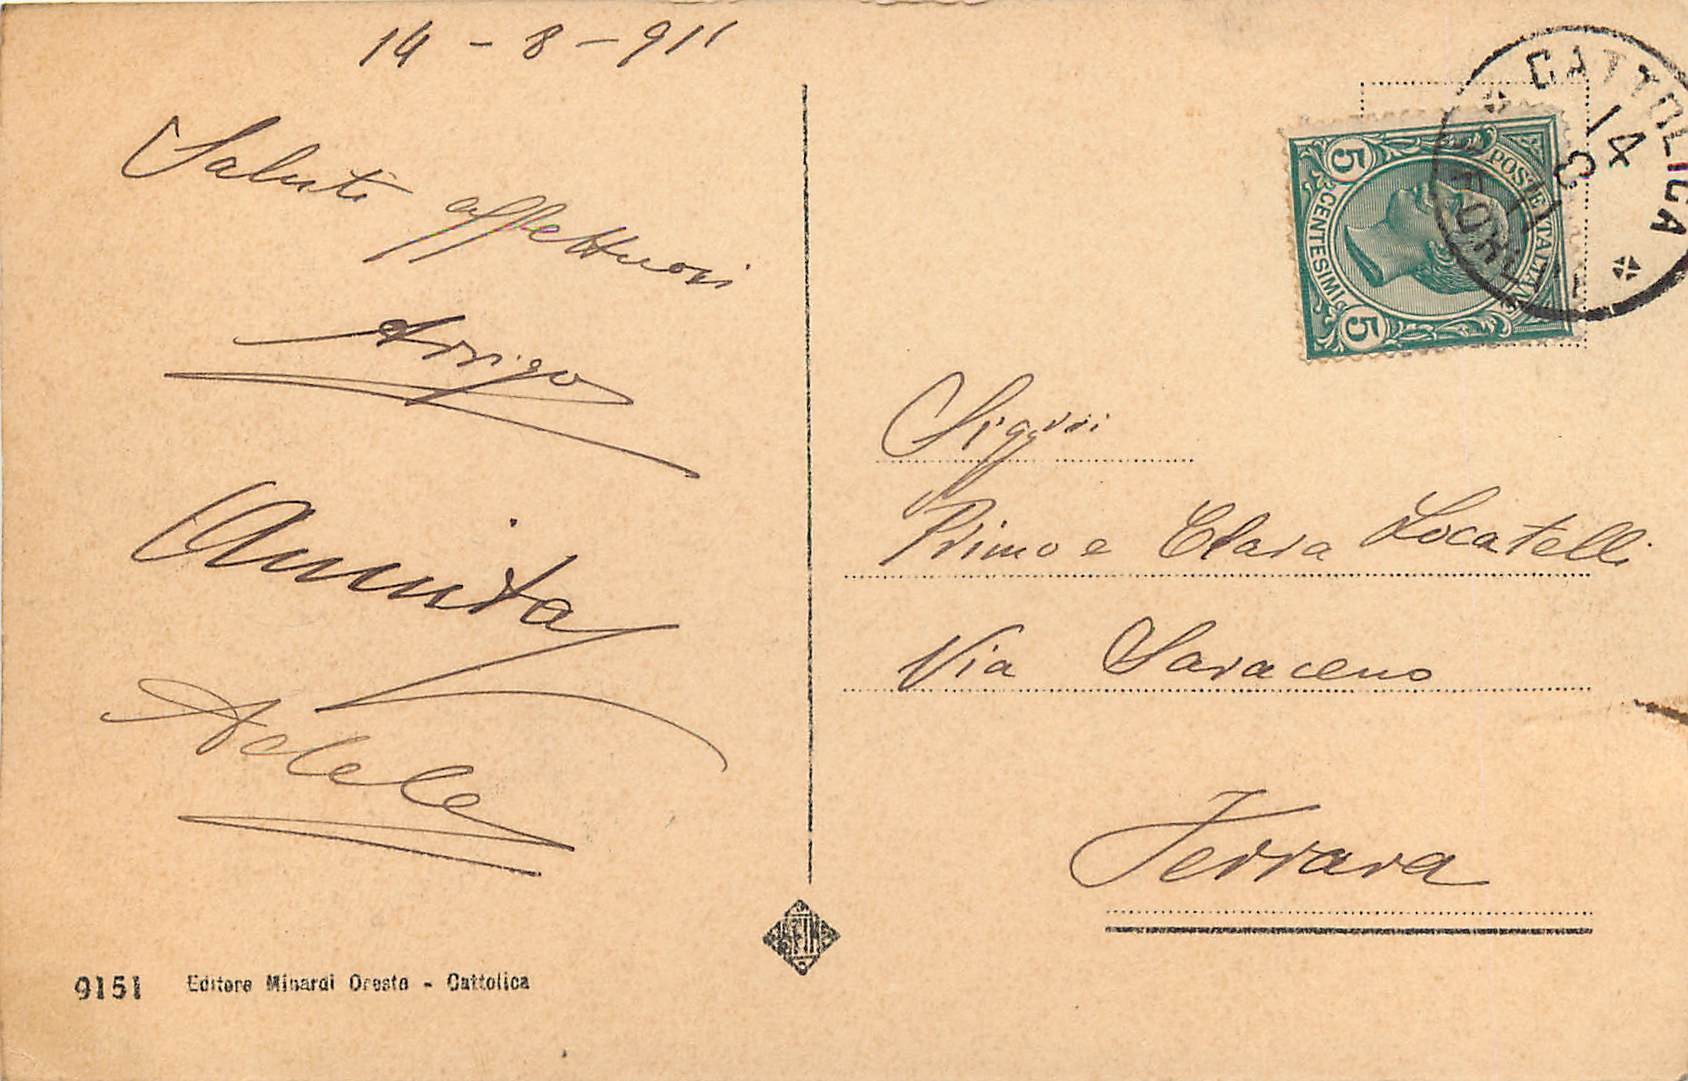 14 - 8 - 911
Saluti affettuosi
Arrigo
Annita
Adele
9151 Editore Minardi Oreste - Cattolica
CATTOLICA
14
8
11
FORLI
POSTE ITALIANE
5 CENTESIMI 5
Siggri
Primo e Clara Locatelli
Via Saraceno
Ferrara